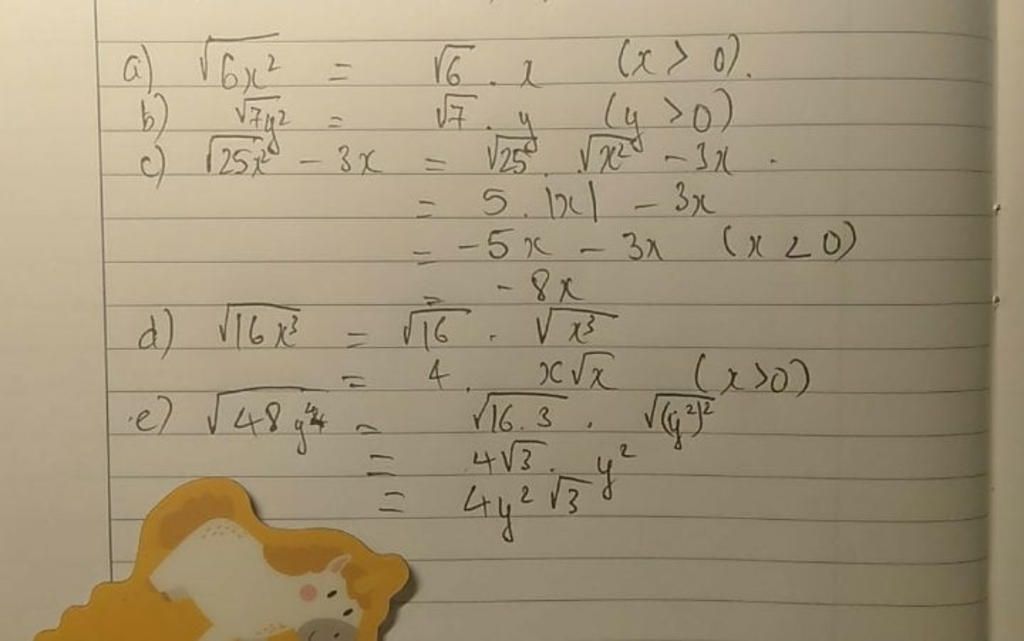 a) √6x² = √6 . x (x > 0).
b) √7y² = √7 . y (y > 0)
c) √25x² - 3x = √25 . √x² - 3x .
= 5 . |x| - 3x
= -5x - 3x (x < 0)
= - 8x
d) √16x³ = √16 . √x³
= 4 . x√x (x > 0)
e) √48y⁴ = √16.3 . √(y²)²
= 4√3 . y²
= 4y² √3